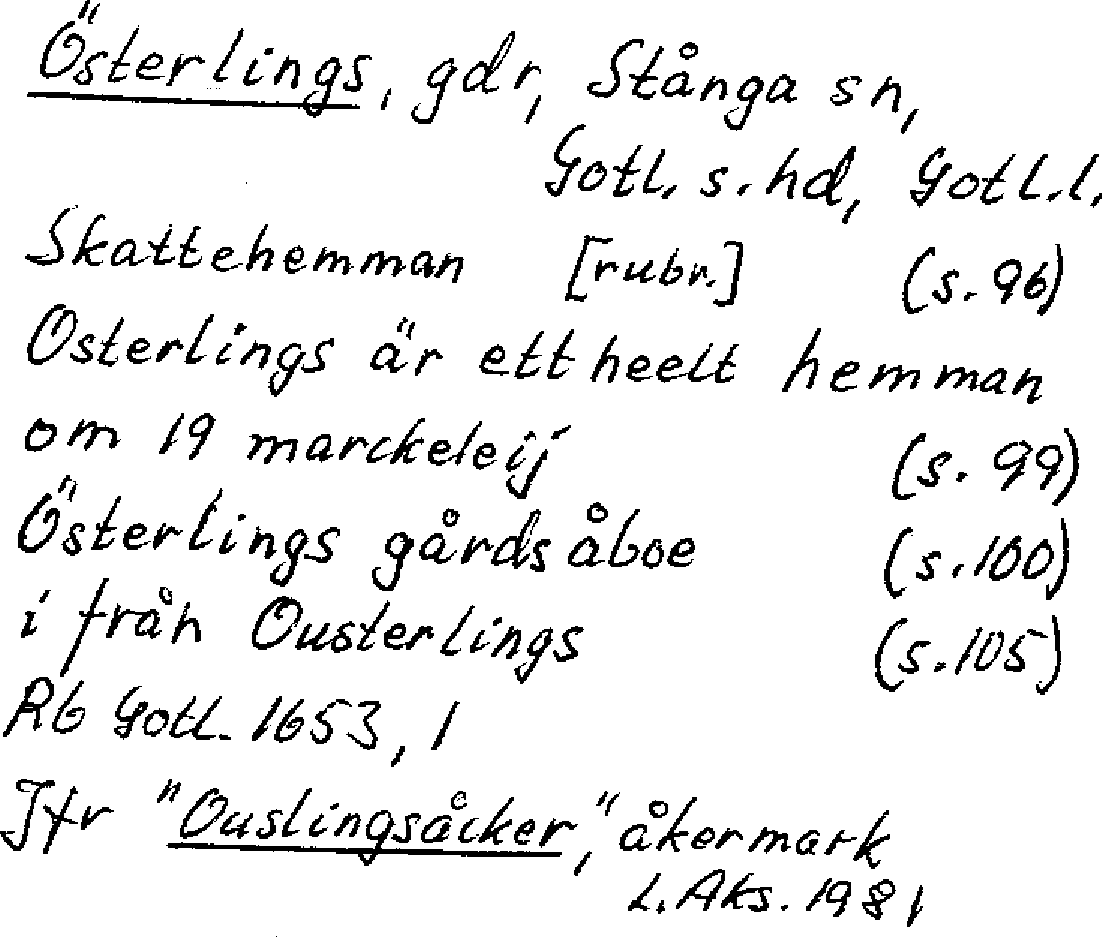 Österlings, gdr, Stånga sn,
Gotl. s. hd, Gotl. l.
Skattehemman [rubr.] (s. 96)
Osterlings är ett heelt hemman
om 19 marckeleij (s. 99)
Österlings gårds åboe (s. 100)
i från Ousterlings (s. 105)
Rb Gotl. 1653, 1
Jfr "Ouslingsåcker," åkermark
L. Aks. 1981